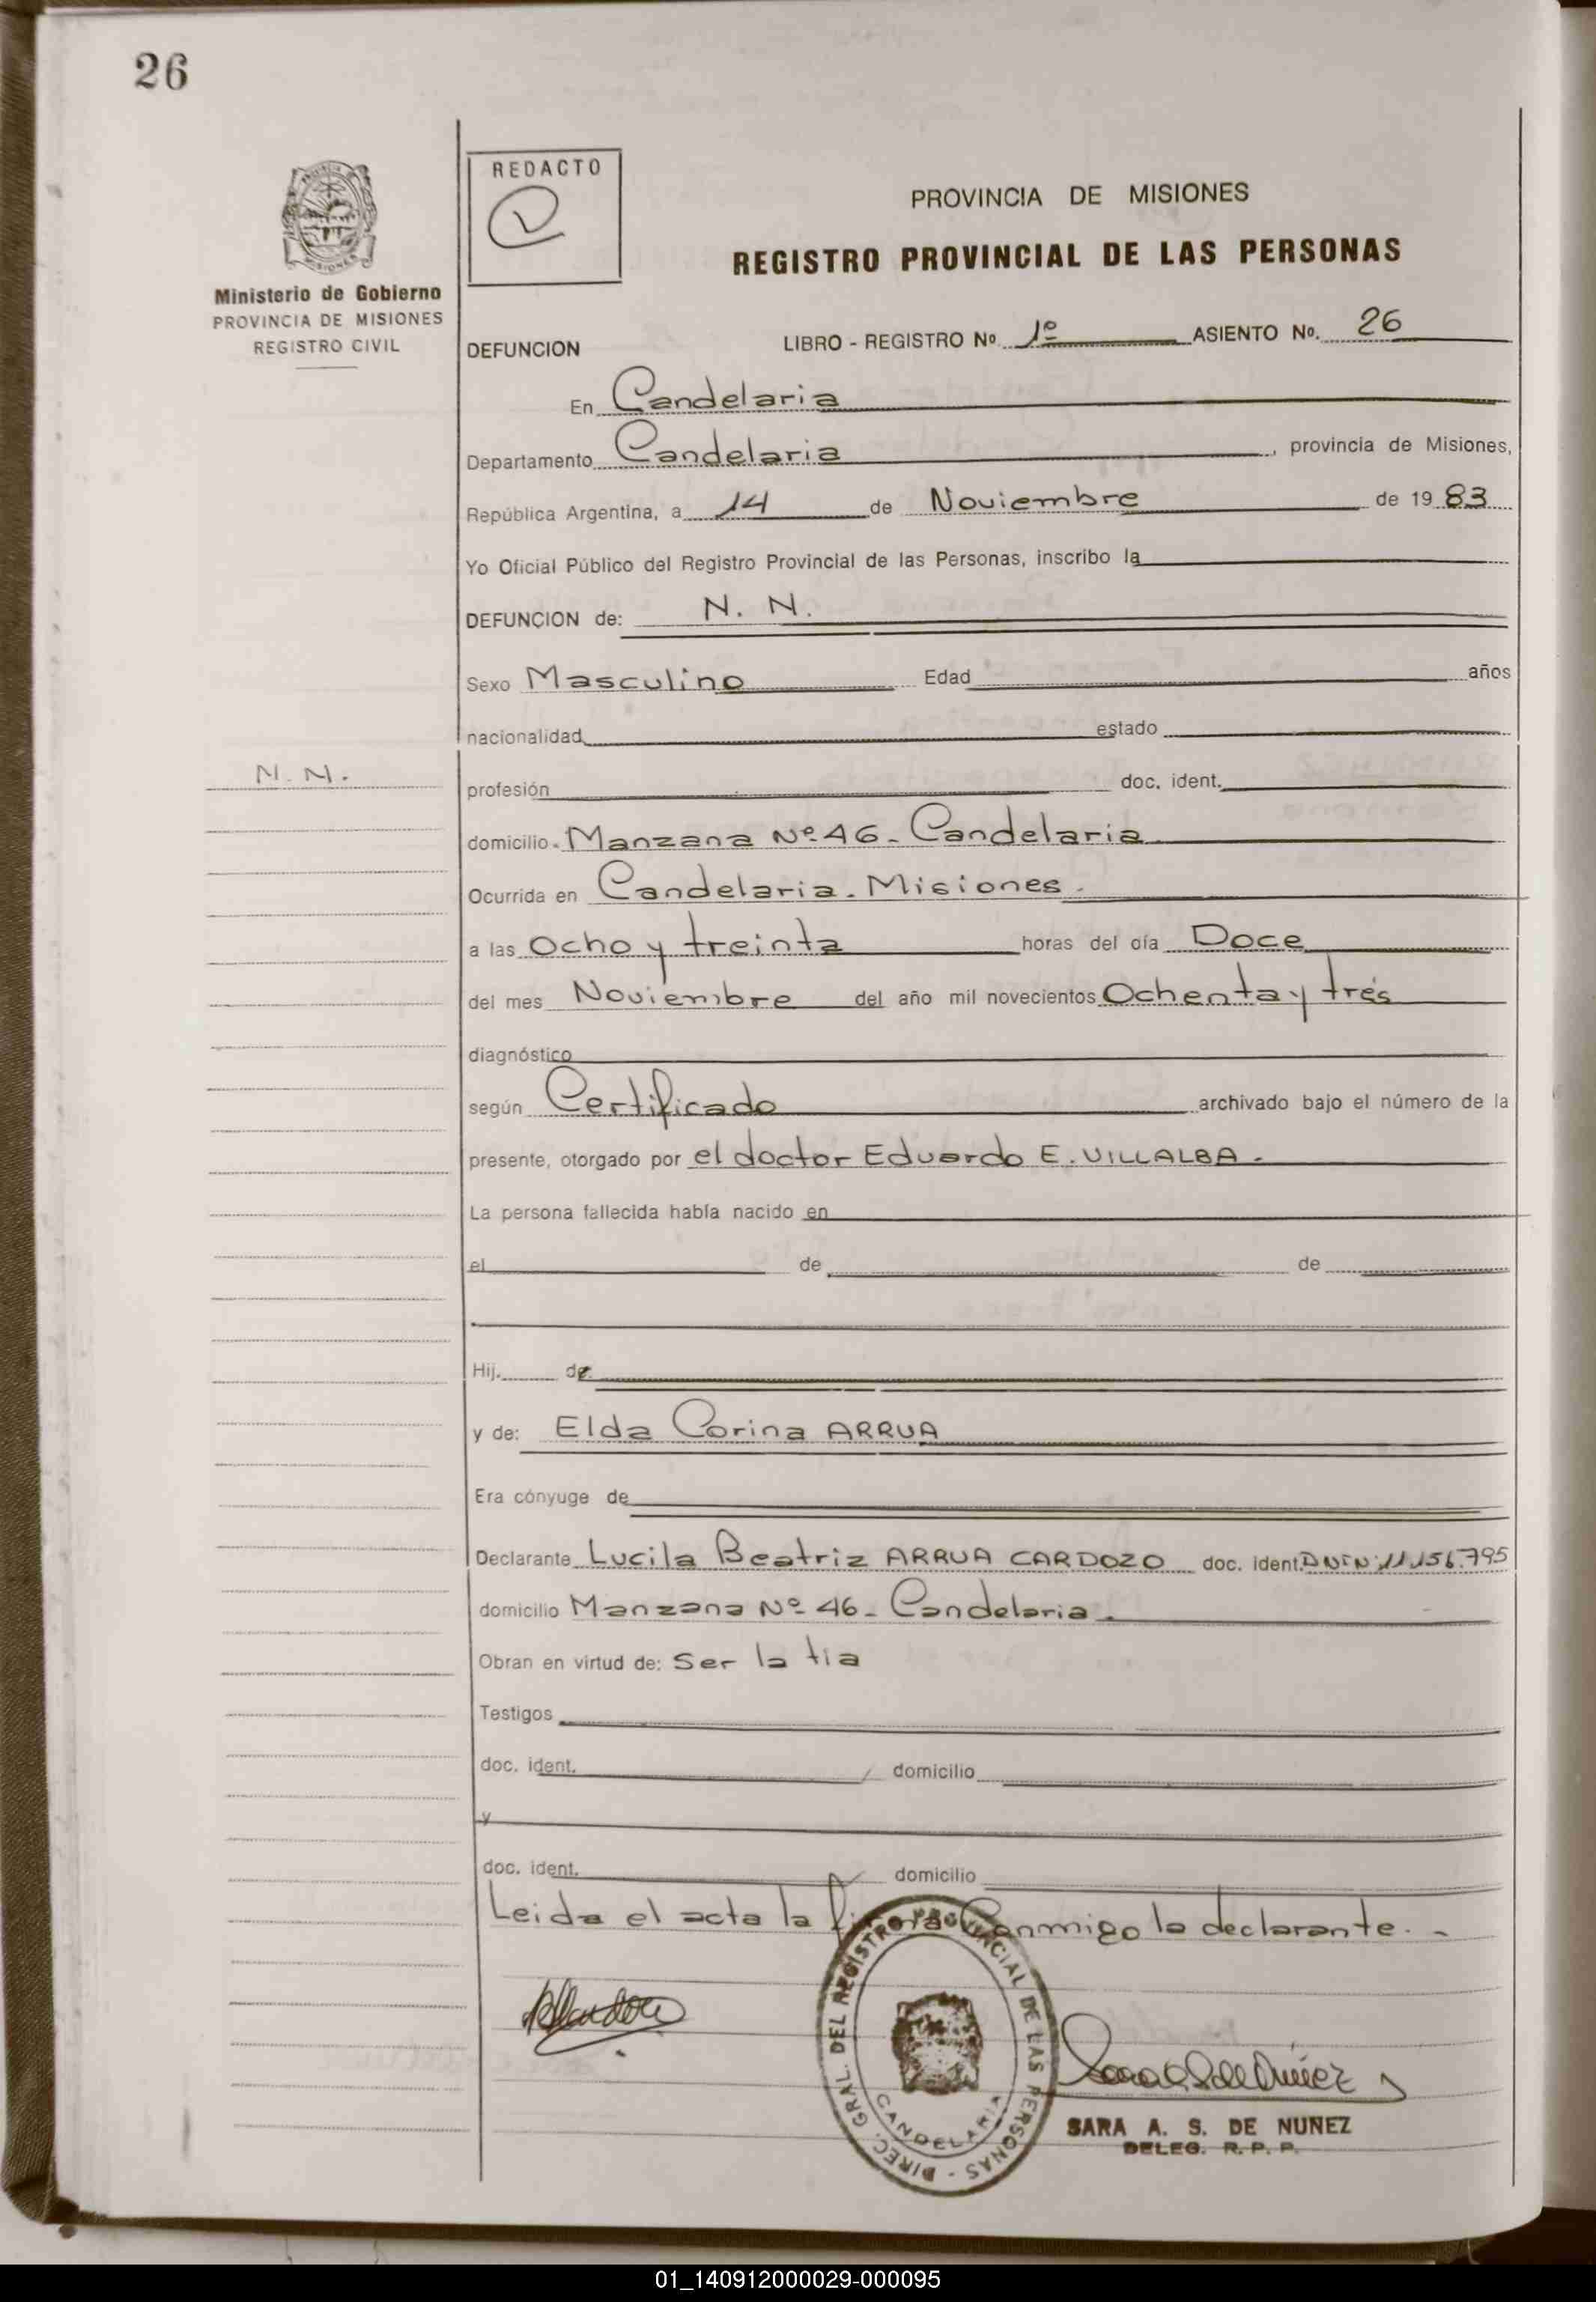 26
REDACTO
PROVINCIA DE MISIONES
REGISTRO PROVINCIAL DE LAS PERSONAS
Ministerio de Gobierno
PROVINCIA DE MISIONES
REGISTRO CIVIL
DEFUNCION LIBRO - REGISTRO No. 1º ASIENTO No. 26
En Candelaria
Departamento Candelaria, provincia de Misiones,
República Argentina, a 14 de Noviembre de 1983
Yo Oficial Público del Registro Provincial de las Personas, inscribo la
DEFUNCION de: N. N.
Sexo Masculino Edad años
nacionalidad estado
N. N.
profesión doc. ident.
domicilio Manzana Nº 46 - Candelaria
Ocurrida en Candelaria - Misiones.
a las Ocho y treinta horas del día Doce
del mes Noviembre del año mil novecientos Ochenta y tres
diagnóstico
según Certificado archivado bajo el número de la
presente, otorgado por el doctor Eduardo E. VILLALBA.
La persona fallecida había nacido en
el de de
Hij. de
y de: Elda Corina ARRUA
Era cónyuge de
Declarante Lucila Beatriz ARRUA CARDOZO doc. ident. DNI Nº 11.156.795
domicilio Manzana Nº 46 - Candelaria.
Obran en virtud de: Ser la tia
Testigos
doc. ident. domicilio
y
doc. ident. domicilio
Leida el acta la firma Conmigo la declarante. -
DIREC. GRAL. DEL REGISTRO PROVINCIAL DE LAS PERSONAS -
CANDELARIA
SARA A. S. DE NUÑEZ
DELEG. R. P. P.
01_140912000029-000095